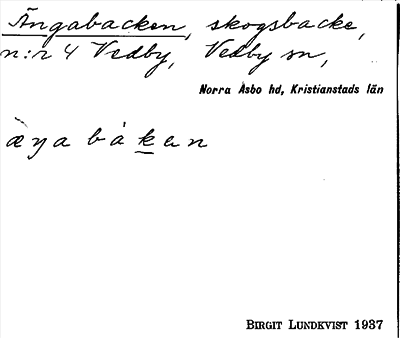 Ängabacken, skogsbacke,
n:r 4 Vedby, Vedby sn,
Norra Åsbo hd, Kristianstads län
æŋa bàken
BIRGIT LUNDKVIST 1937